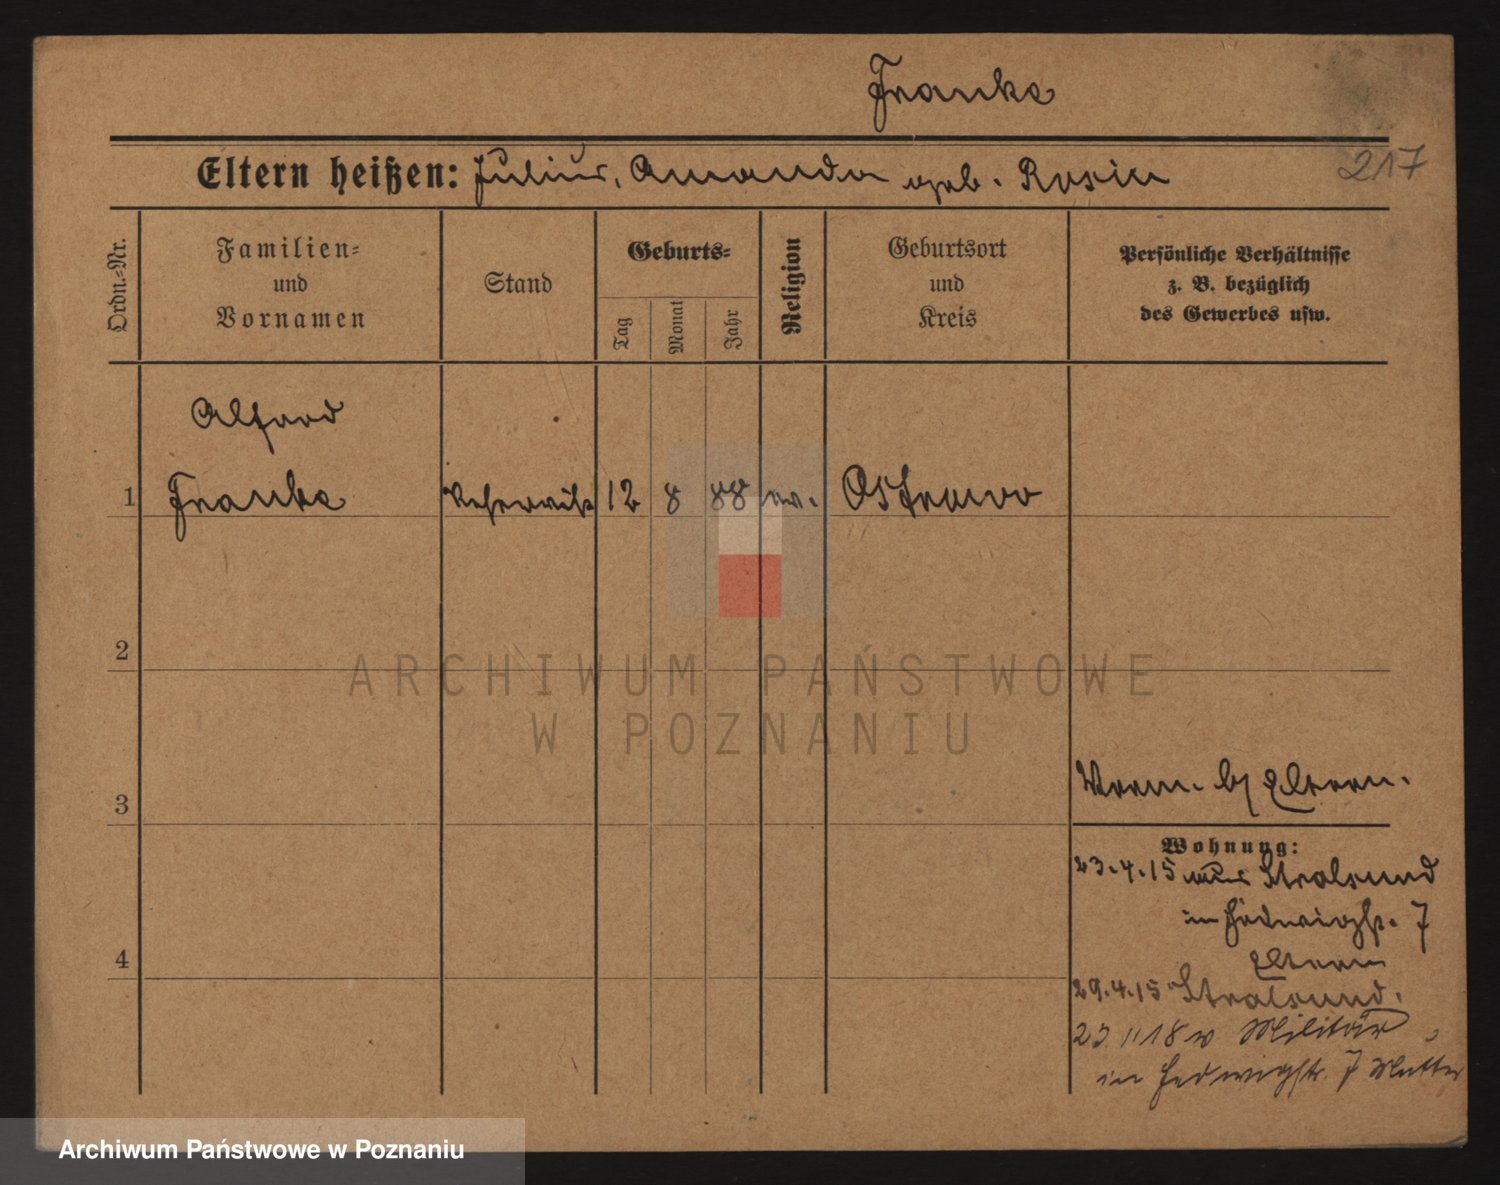 Franke
217
Eltern heißen: Julius, Amanda geb. Rosin
Ordn.-Nr.
Familien-
und
Vornamen
Stand
Geburts-
Tag
Monat
Jahr
Religion
Geburtsort
und
Kreis
Persönliche Verhältnisse
z. B. bezüglich
des Gewerbes usw.
Alfred
1 Franke 12 8 88 ev. Ostrowo
2
ARCHIWUM PAŃSTWOWE
W POZNANIU
3
Verm. b/ Eltern.
Wohnung:
23.4.15 aus Stralsund
in Hedwigstr. 7
4
Eltern
29.4.15 Stralsund.
23 11 18 v Militär
in Hedwigstr. 7 Mutter
Archiwum Państwowe w Poznaniu